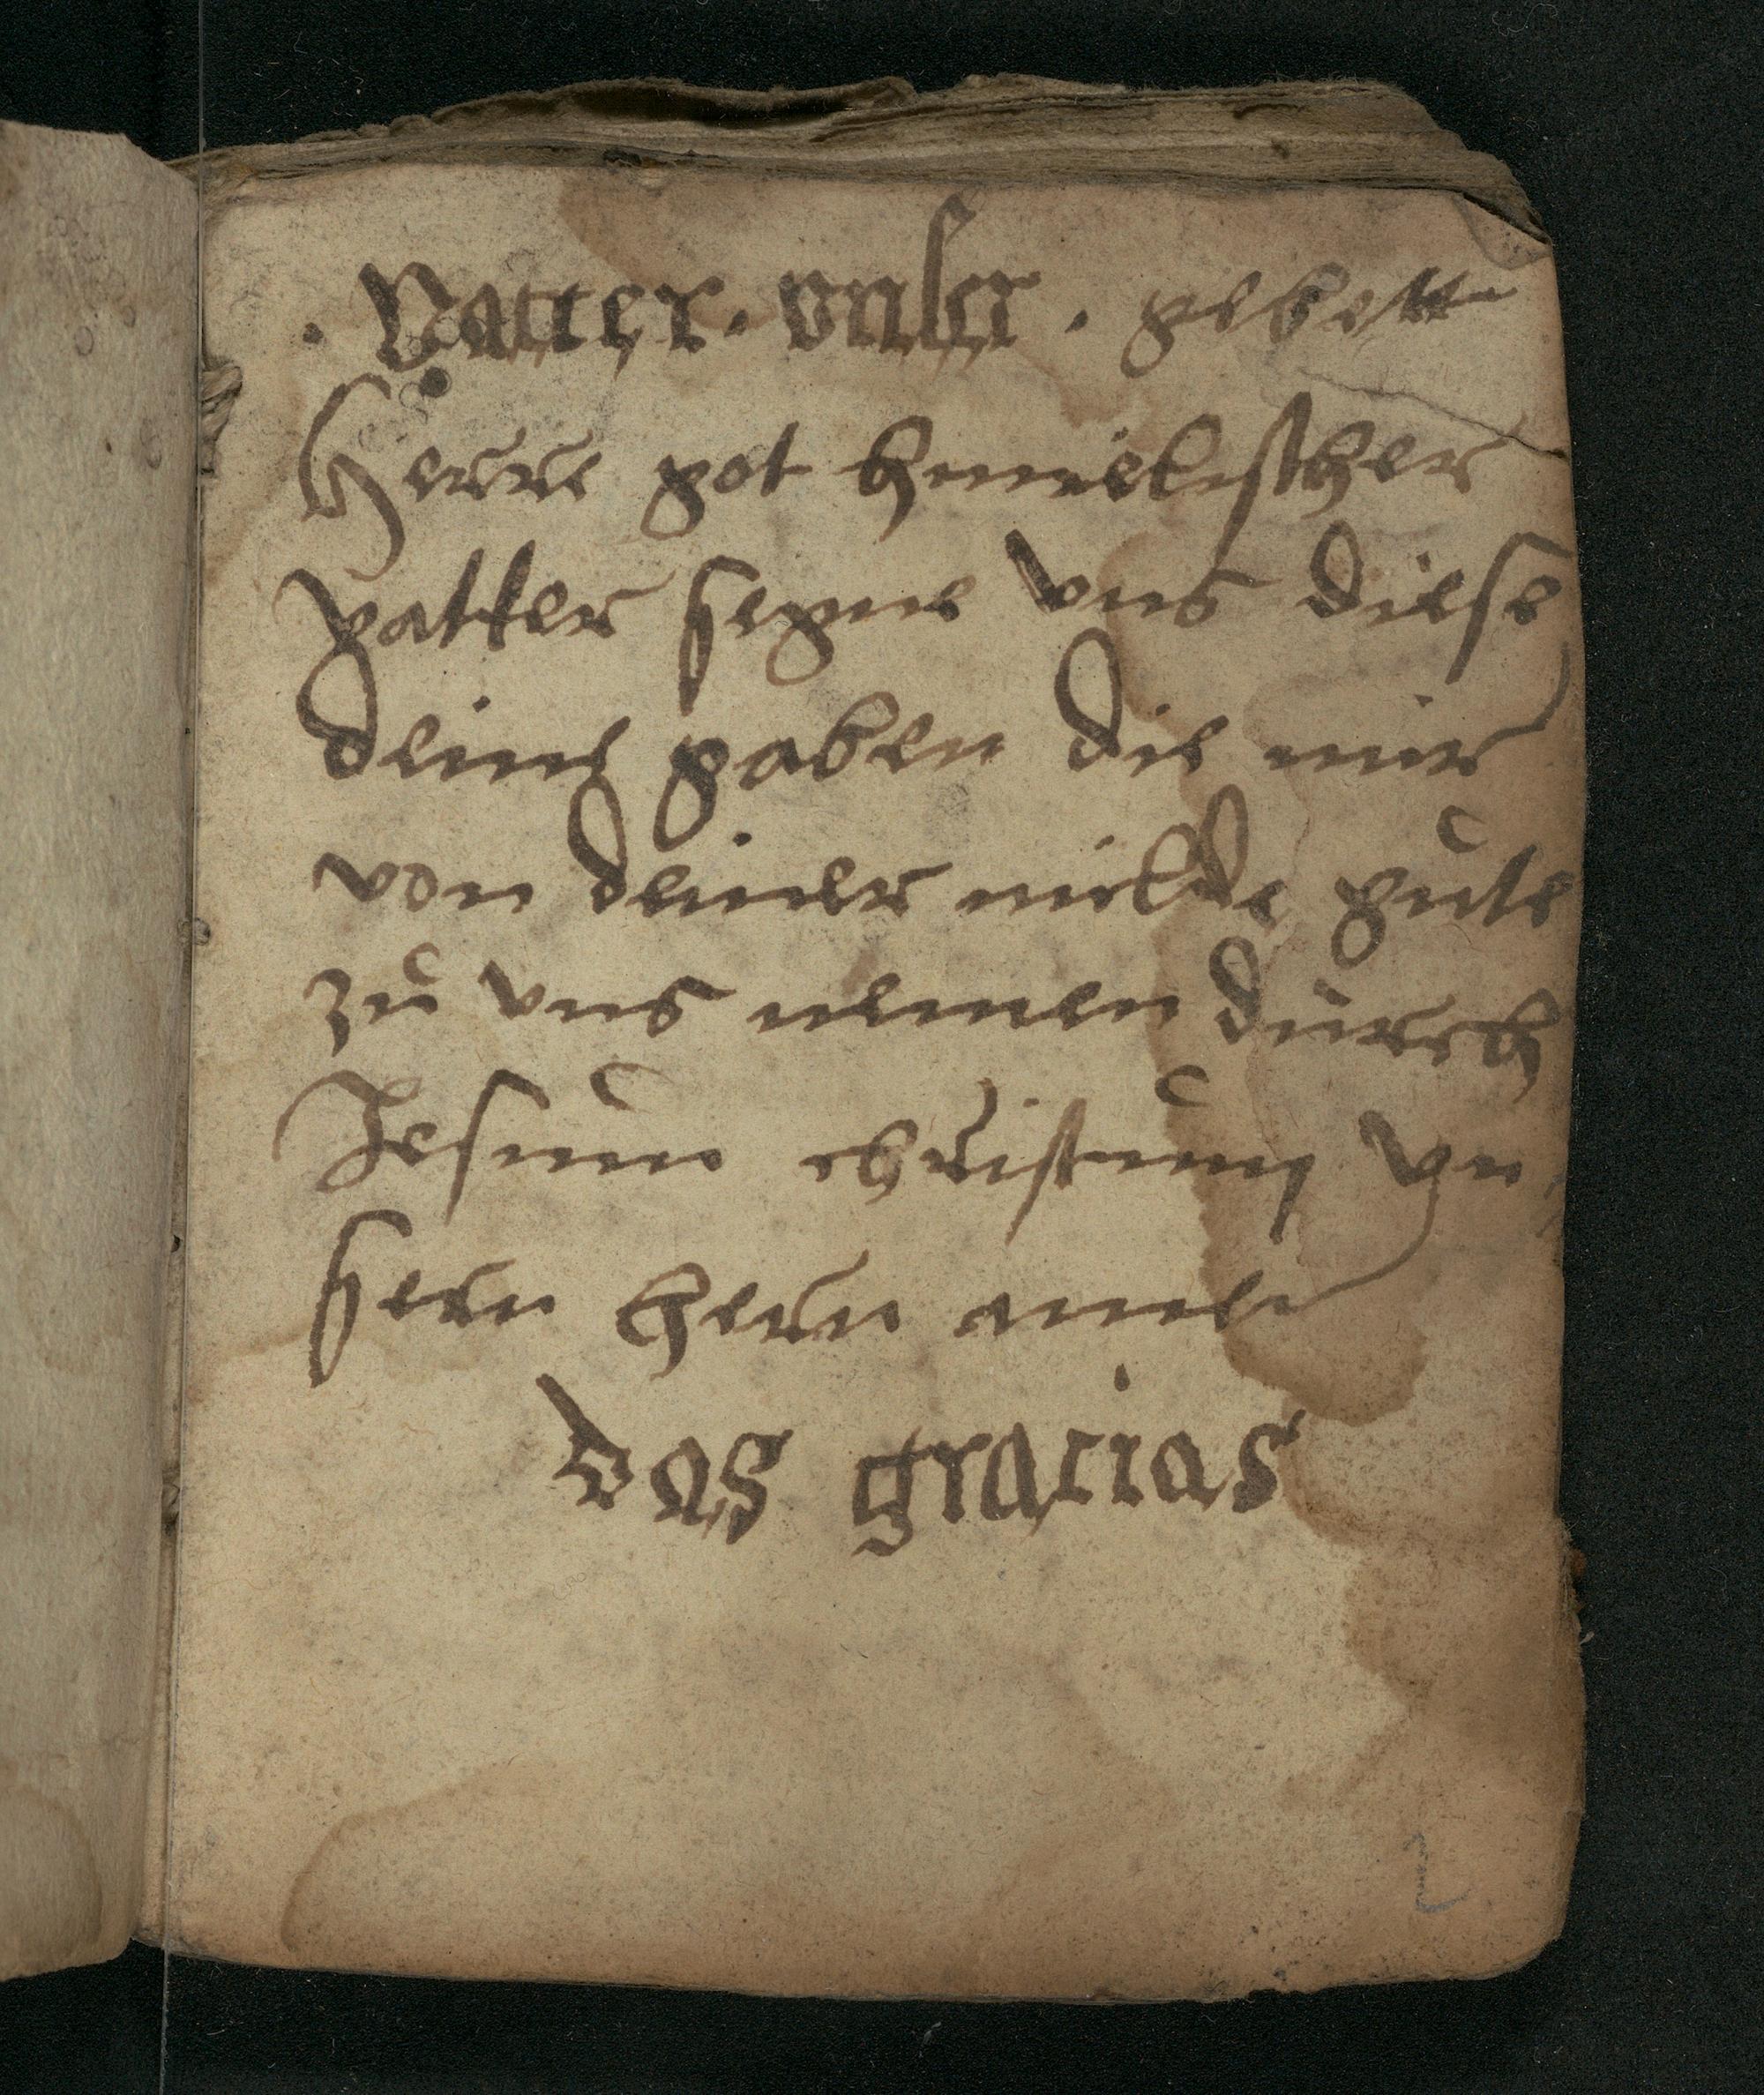 . Vatter . vnser . gebett
Herre got himelischer
vatter segne vns diese
deine gaben die mir
von deiner milde gute
zu vns nemen durch
Jesum christum vn
sern hern amen
das gracias
2